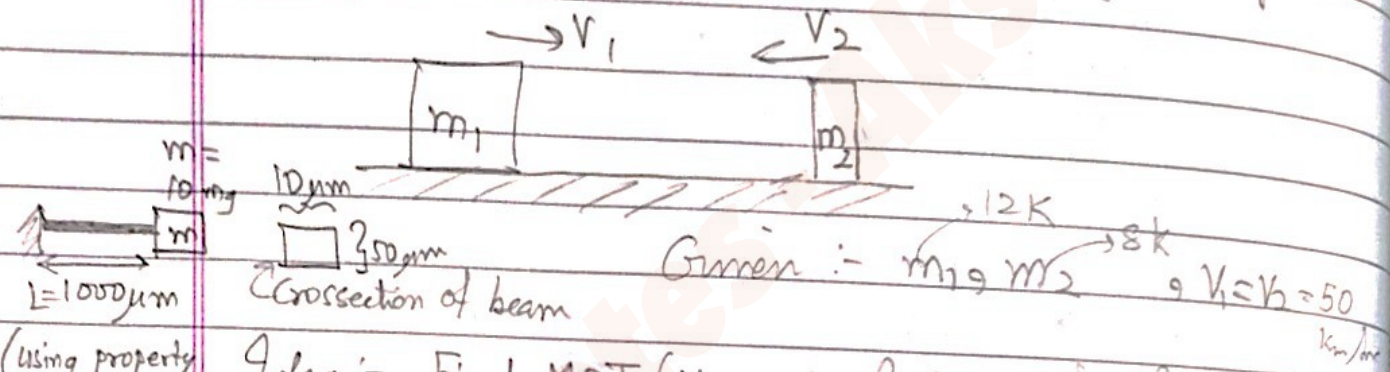 →V1
V2
m1
m2
m =
10 mg
10 μm
m
}50μm
L=1000μm
Crossection of beam
12K
8K
Given :- m1, m2 , V1 = V2 = 50
Km/
(using property
Find